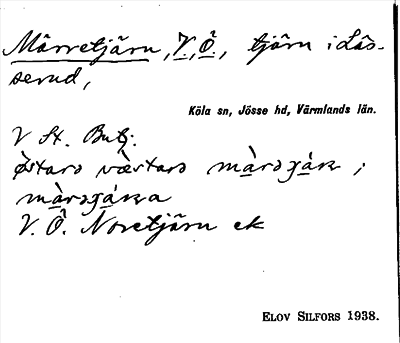 Mårretjärn, V, Ö, tjärn i Lås-
serud,
Köla sn, Jösse hd, Värmlands län.
V St. But;
østarə væstarə màrəgárɴ ;
màrəgárɴa
V. Ö. Noretjärn ek
ELOV SILFORS 1938.